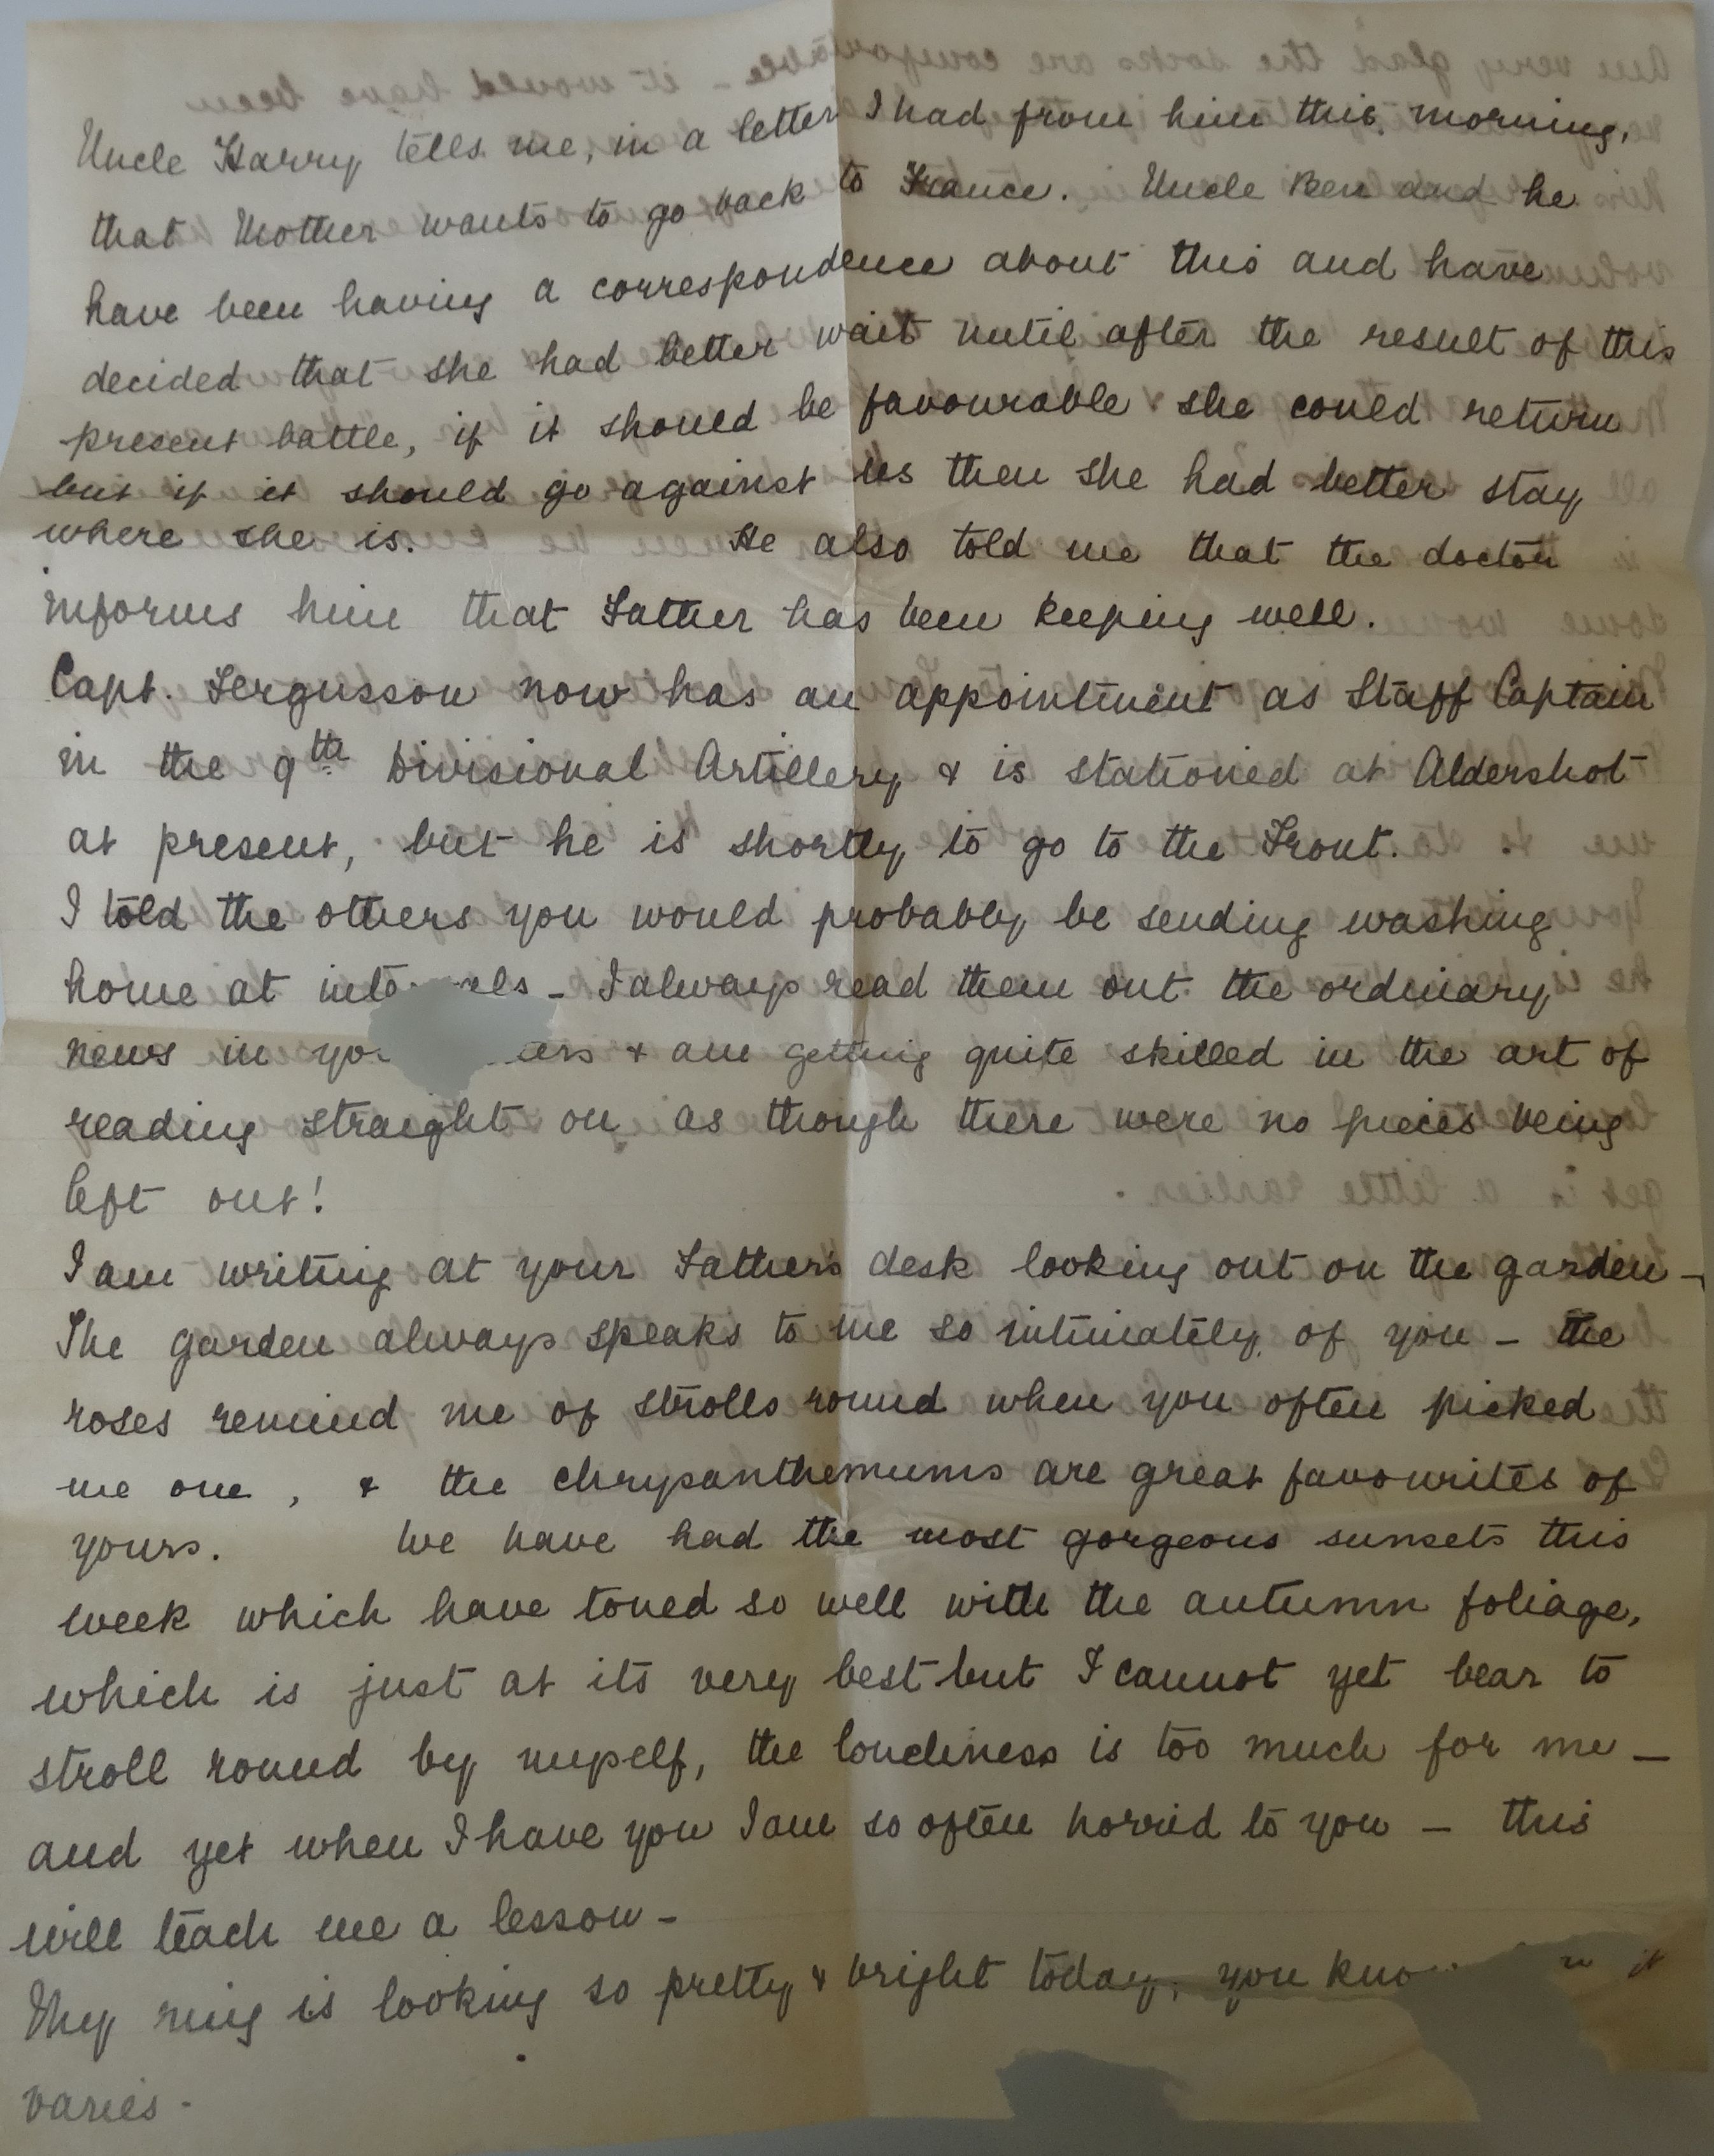 Uncle Harry tells me, in a letter I had from him this morning,
that Mother wants to go back to France. Uncle Ben and he
have been having a correspondence about this and have
decided that she had better wait until after the result of this
present battle, if it should be favourable she could return
but if it should go against us then she had better stay
where she is. He also told me that the doctor
informs him that Father has been keeping well.
Capt. Fergusson now has an appointment as Staff Captain
in the 9th Divisional Artillery & is stationed at Aldershot
at present, but he is shortly to go to the Front.
I told the others you would probably be sending washing
home at - I always read them out the ordinary
news in & am getting quite skilled in the art of
reading straight on as though there were no pieces being
left out!
I am writing at your Father's desk looking out on the garden -
The garden always speaks to me so intimately of you - the
roses remind me of strolls round when you often picked
me one, & the chrysanthemums are great favourites of
yours. We have had the most gorgeous sunsets this
week which have toned so well with the autumn foliage,
which is just at its very best but I cannot yet bear to
stroll round by myself, the loneliness is too much for me -
and yet when I have you I am so often horrid to you - this
will teach me a lesson -
My ring is looking so pretty & bright today, you it
varies.